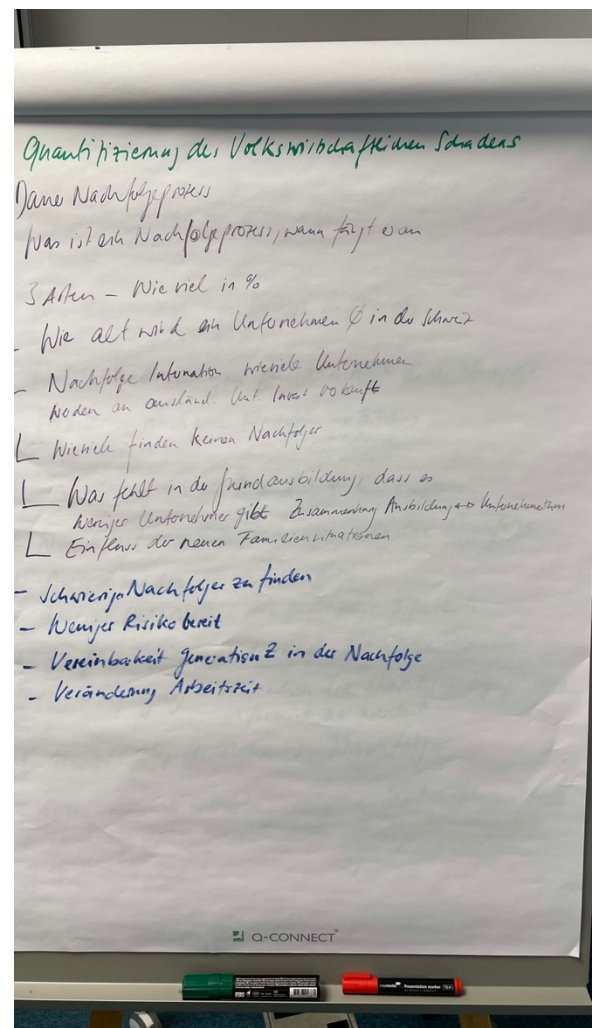 Quantifizierung des Volkswirtschaftlichen Schadens
Dauer Nachfolgeprozess
Was ist ein Nachfolgeprozess, wann fängt er an
3 Arten – Wie viel in %
- Wie alt wird ein Unternehmen Ø in der Schweiz
- Nachfolge Information wieviele Unternehmen
werden an ausländ. Unt. Invest verkauft
Wieviele finden keinen Nachfolger
Was fehlt in der Grundausbildung, dass es
weniger Unternehmer gibt Zusammenhang Ausbildung ↔ Unternehmertum
Einfluss der neuen Familiensituationen
- Schwieriger Nachfolger zu finden
- Weniger Risiko bereit
- Vereinbarkeit Generation Z in der Nachfolge
- Veränderung Arbeitszeit
Q-CONNECT
Presentation marker